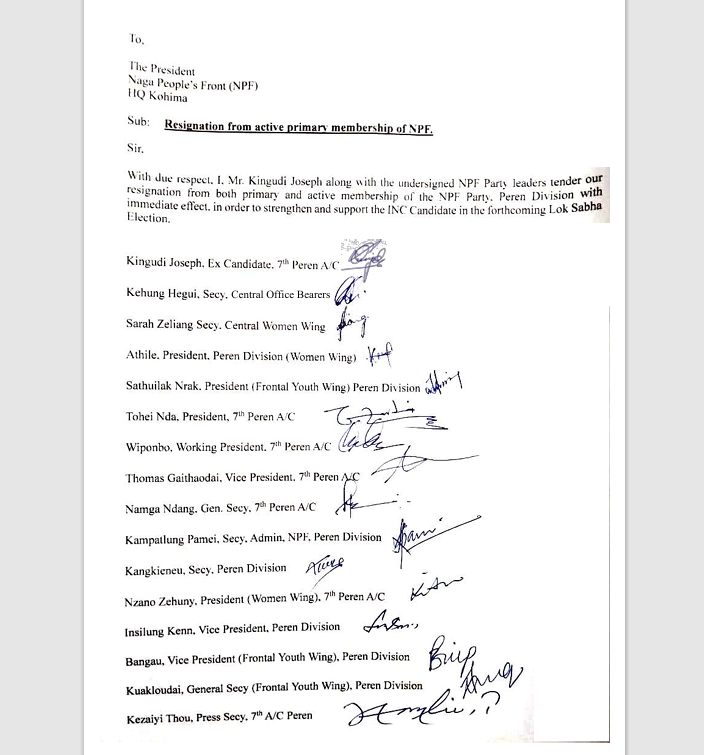 To,
The President
Naga People's Front (NPF)
HQ Kohima
Sub: Resignation from active primary membership of NPF.
Sir,
With due respect, I, Mr. Kingudi Joseph along with the undersigned NPF Party leaders tender our
resignation from both primary and active membership of the NPF Party, Peren Division with
immediate effect, in order to strengthen and support the INC Candidate in the forthcoming Lok Sabha
Election.
Kingudi Joseph, Ex Candidate, 7th Peren A/C
Kehung Hegui, Secy, Central Office Bearers
Sarah Zeliang Secy, Central Women Wing
Athile, President, Peren Division (Women Wing)
Sathuilak Nrak, President (Frontal Youth Wing) Peren Division
Tohei Nda, President, 7th Peren A/C
Wiponbo, Working President, 7th Peren A/C
Thomas Gaithaodai, Vice President, 7th Peren A/C
Namga Ndang, Gen. Secy, 7th Peren A/C
Kampatlung Pamei, Secy, Admin, NPF, Peren Division
Kangkieneu, Secy, Peren Division
Nzano Zehuny, President (Women Wing), 7th Peren A/C
Insilung Kenn, Vice President, Peren Division
Bangau, Vice President (Frontal Youth Wing), Peren Division
Kuakloudai, General Secy (Frontal Youth Wing), Peren Division
Kezaiyi Thou, Press Secy, 7th A/C Peren